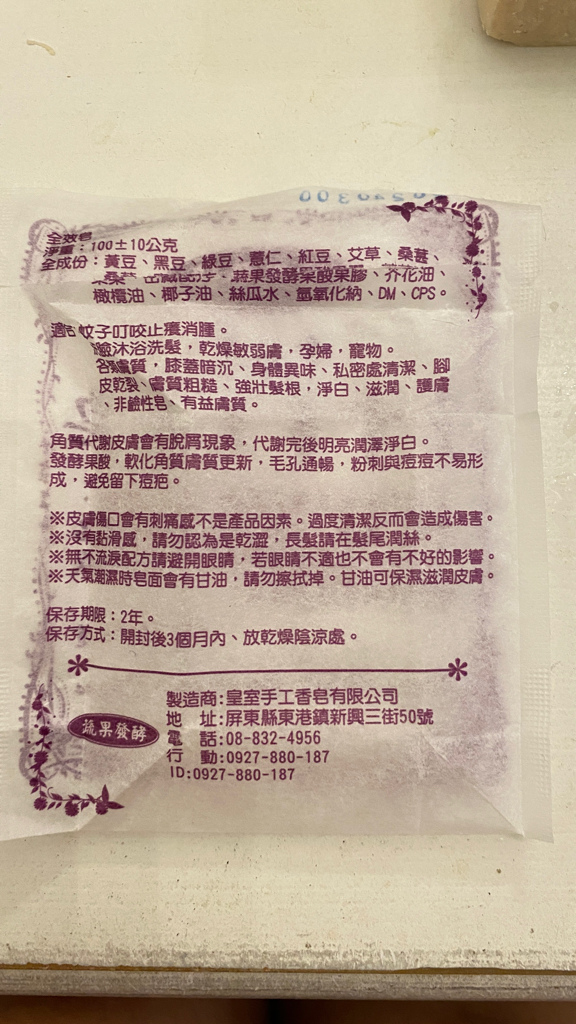 全效皂
淨重：100±10公克
全成份：黃豆、黑豆、綠豆、薏仁、紅豆、艾草、桑葚、
蔬果發酵果酸果膠、芥花油、
橄欖油、椰子油、絲瓜水、氫氧化納、DM、CPS。
蚊子叮咬止癢消腫。
沐浴洗髮，乾燥敏弱膚，孕婦，寵物。
膚質，膝蓋暗沉、身體異味、私密處清潔、腳
皮乾裂、膚質粗糙、強壯髮根，淨白、滋潤、護膚
、非鹼性皂、有益膚質。
角質代謝皮膚會有脫屑現象，代謝完後明亮潤澤淨白。
發酵果酸，軟化角質膚質更新，毛孔通暢，粉刺與痘痘不易形
成，避免留下痘疤。
※皮膚傷口會有刺痛感不是產品因素。過度清潔反而會造成傷害。
※沒有黏滑感，請勿認為是乾澀，長髮請在髮尾潤絲。
※無不流淚配方請避開眼睛，若眼睛不適也不會有不好的影響。
※天氣潮濕時皂面會有甘油，請勿擦拭掉。甘油可保濕滋潤皮膚。
保存期限：2年。
保存方式：開封後3個月內、放乾燥陰涼處。
蔬果發酵
製造商:皇室手工香皂有限公司
地　址:屏東縣東港鎮新興三街50號
電　話:08-832-4956
行　動:0927-880-187
ID:0927-880-187